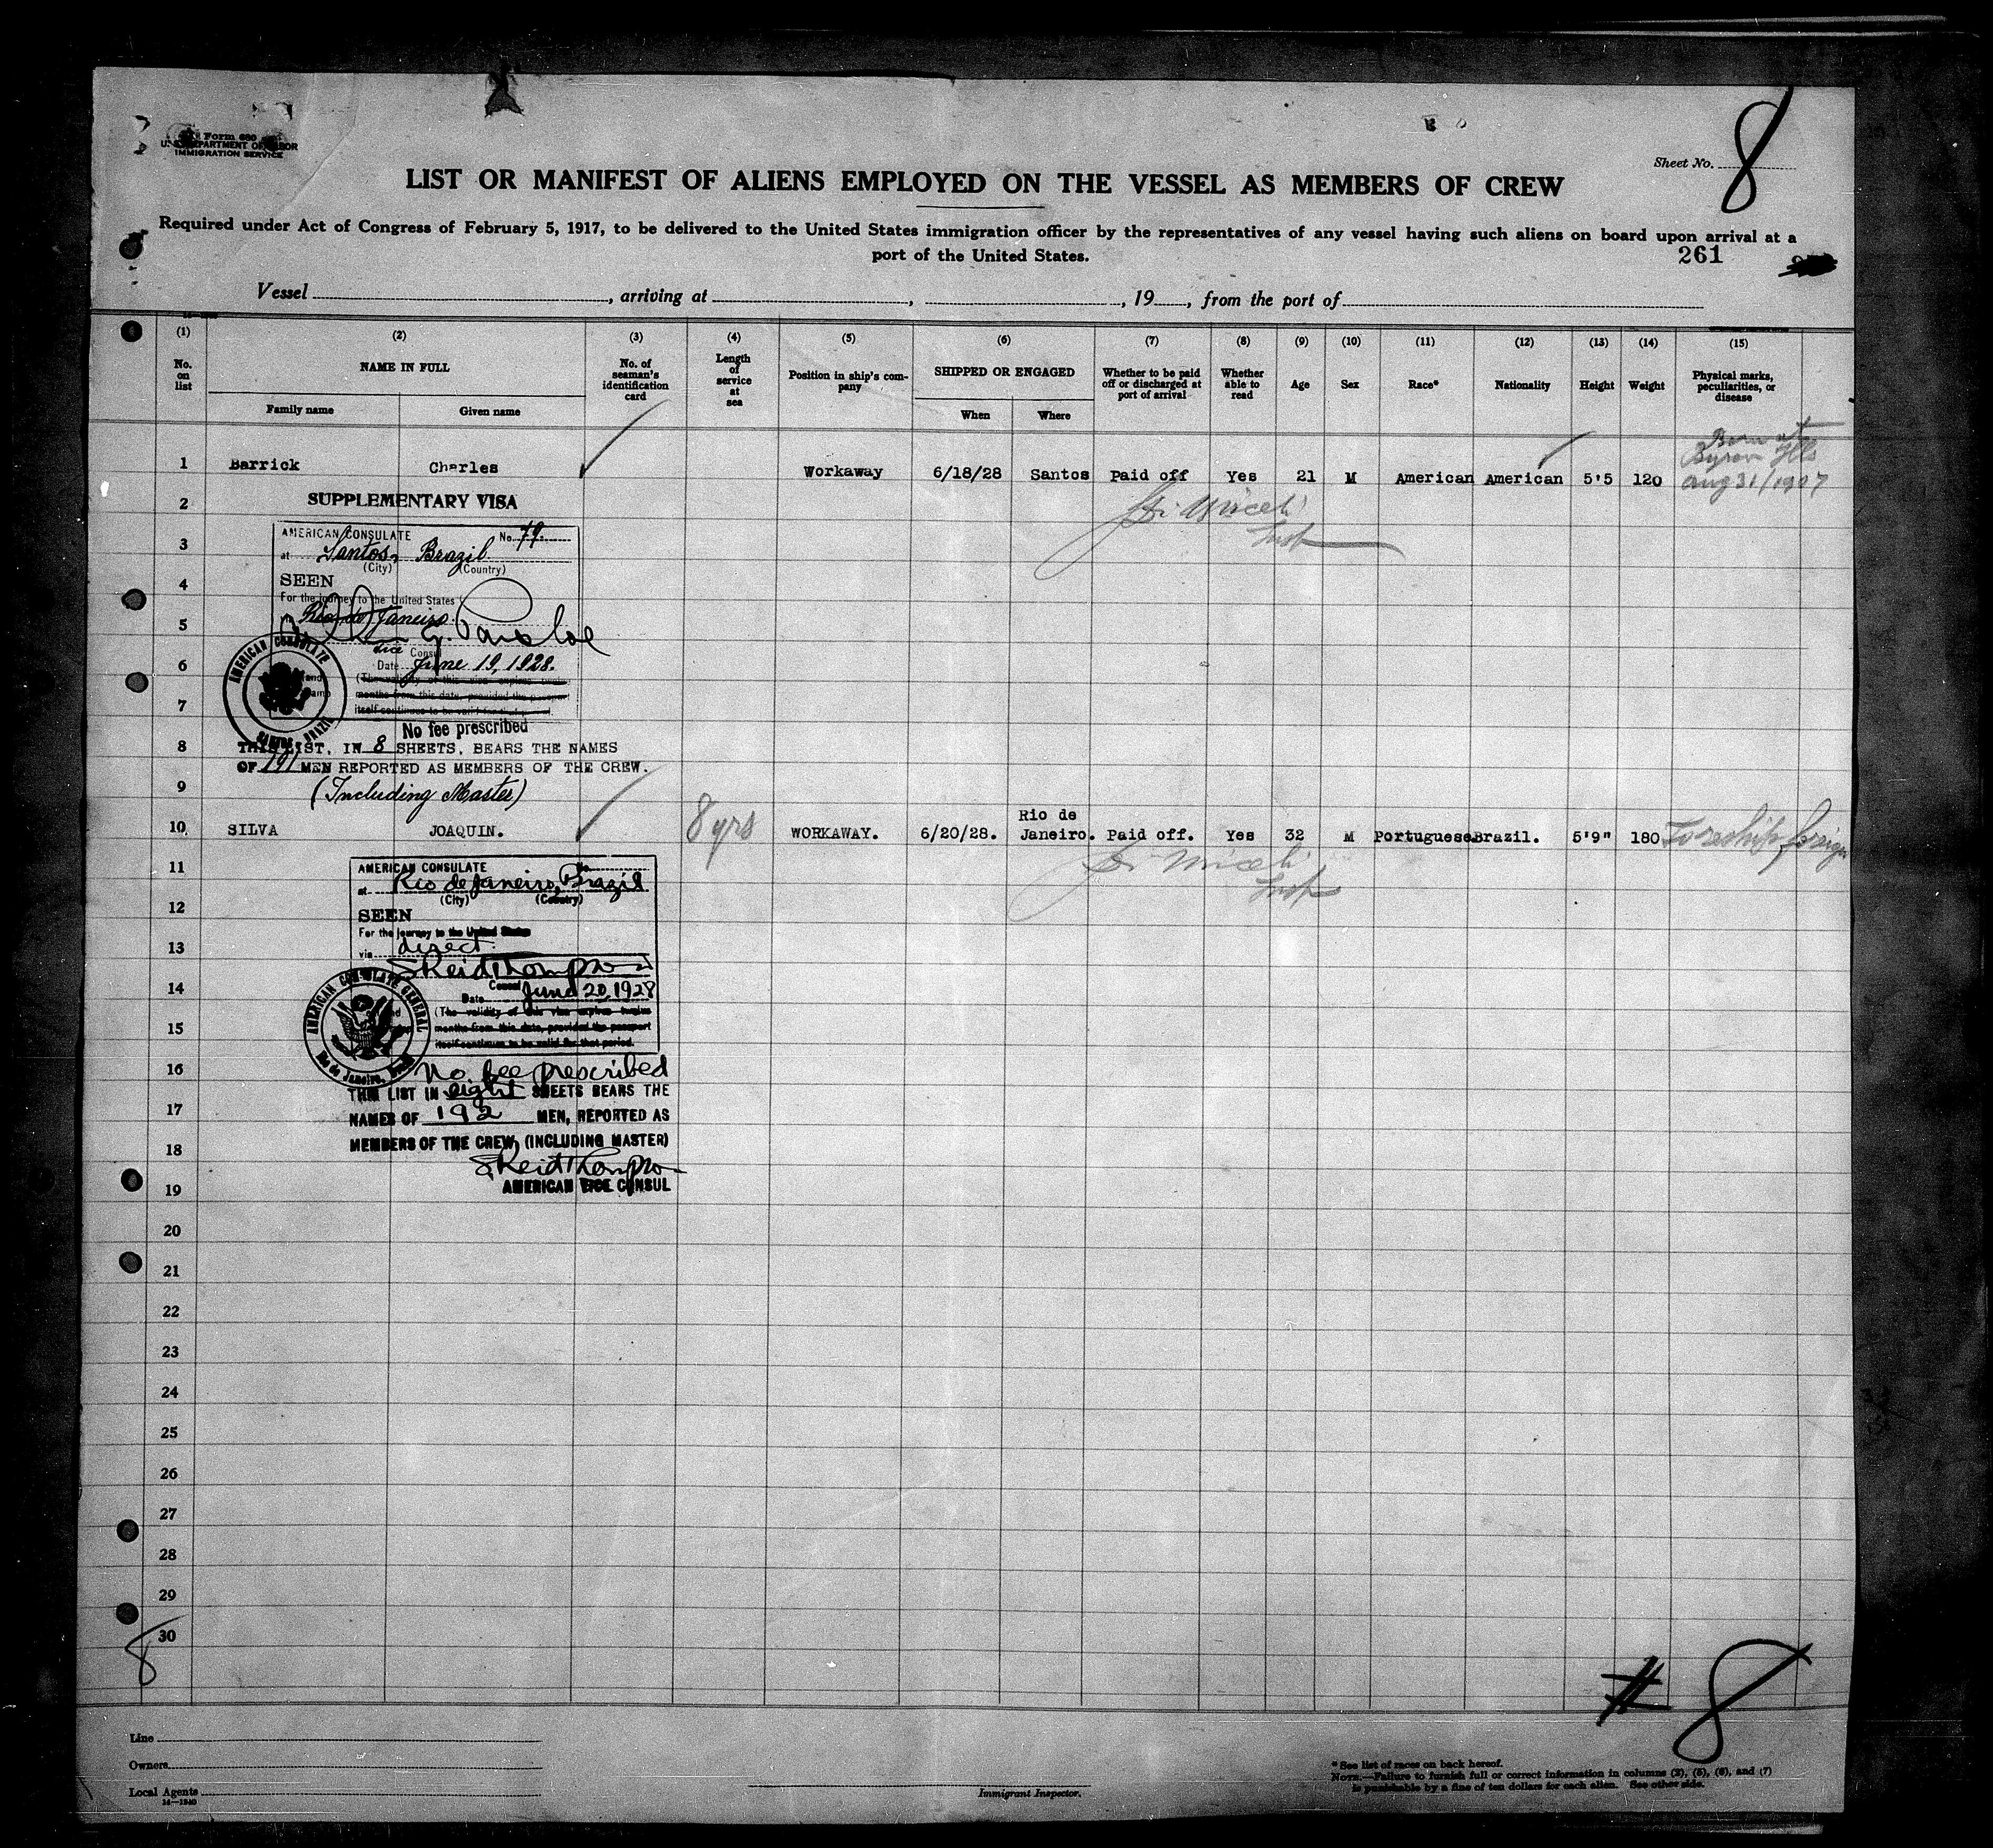 Form 680
U. S. DEPARTMENT OF LABOR
IMMIGRATION SERVICE
Sheet No. 8
LIST OR MANIFEST OF ALIENS EMPLOYED ON THE VESSEL AS MEMBERS OF CREW
Required under Act of Congress of February 5, 1917, to be delivered to the United States immigration officer by the representatives of any vessel having such aliens on board upon arrival at a
port of the United States.
261
Vessel , arriving at , , 19 , from the port of
(1) (2) (3) (4) (5) (6) (7) (8) (9) (10) (11) (12) (13) (14) (15)
No. on list
NAME IN FULL
Family name
Given name
No. of seaman's identification card
Length of service at sea
Position in ship's company
SHIPPED OR ENGAGED
When
Where
Whether to be paid off or discharged at port of arrival
Whether able to read
Age
Sex
Race*
Nationality
Height
Weight
Physical marks, peculiarities, or disease
1 Barrick Charles Workaway 6/18/28 Santos Paid off Yes 21 M American American 5'5 120 Born at Byron Ills Aug 31/1907
2 SUPPLEMENTARY VISA
Di Miceli
Insp
3
AMERICAN CONSULATE No. 79
at Santos, Brazil
(City) (Country)
4 SEEN
For the journey to the United States
5 Rio de Janeiro
vice Consul
6 Date June 19, 1928.
(The validity of this visa expires twelve
months from this date, provided the passport
7 itself continues to be valid for that period.
AMERICAN CONSULATE
SANTOS, BRAZIL
No fee prescribed
8 THIS LIST, IN 8 SHEETS, BEARS THE NAMES
OF 191 MEN REPORTED AS MEMBERS OF THE CREW.
9 (Including Master)
10 SILVA JOAQUIN. 8 yrs WORKAWAY. 6/20/28. Rio de Janeiro. Paid off. Yes 32 M Portuguese Brazil. 5'9" 180 To reship foreign
Di Miceli
Insp
11 AMERICAN CONSULATE No.
at Rio de Janeiro, Brazil
12 (City) (Country)
SEEN
For the journey to the United States
13 via direct
S Reid Thompson
14 Consul
Date June 20, 1928
15 (The validity of this visa expires twelve
months from this date, provided the passport
itself continues to be valid for that period.
AMERICAN CONSULATE GENERAL
Rio de Janeiro, Brazil
16 No fee prescribed
THIS LIST IN eight SHEETS BEARS THE
17 NAMES OF 192 MEN, REPORTED AS
18 MEMBERS OF THE CREW, (INCLUDING MASTER)
S Reid Thompson
19 AMERICAN VICE CONSUL
20
21
22
23
24
25
26
27
28
29
30
8
# 8
Line
Owners
Local Agents
14—1940
Immigrant Inspector.
* See list of races on back hereof.
NOTE.—Failure to furnish full or correct information in columns (2), (5), (6), and (7)
is punishable by a fine of ten dollars for each alien. See other side.